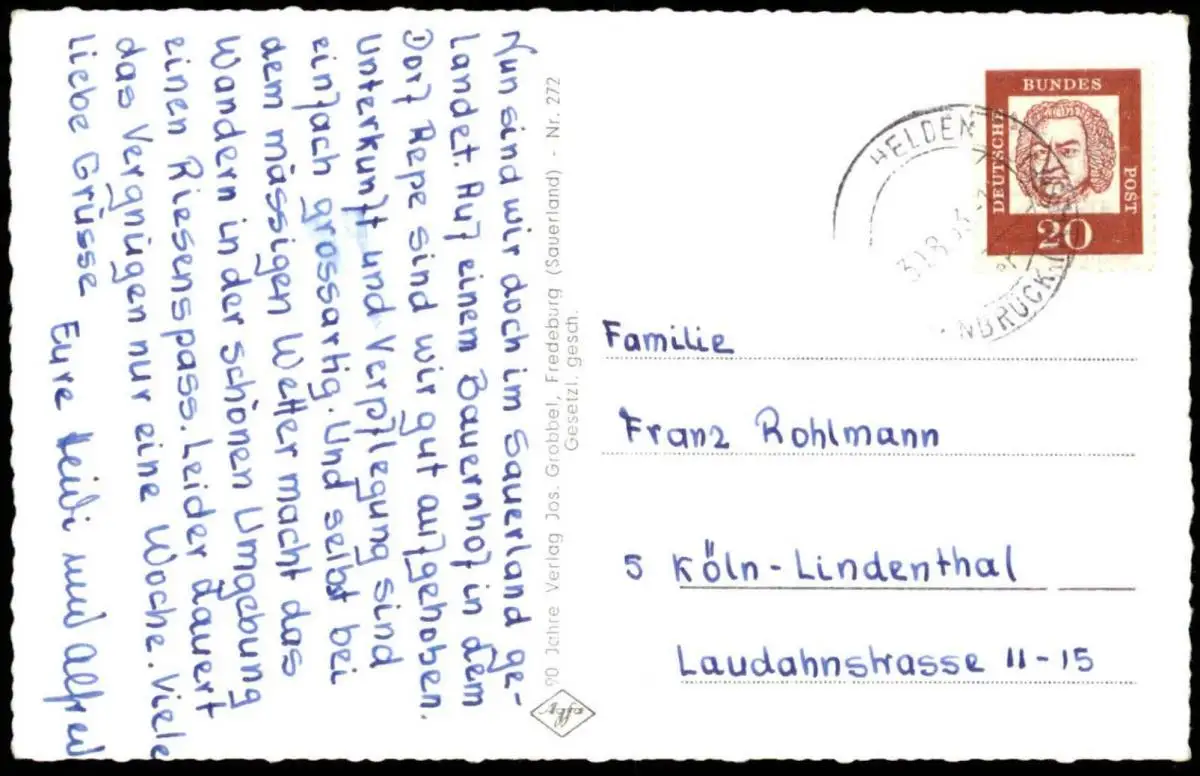 Nun sind wir doch im Sauerland ge-
landet. Auf einem Bauernhof in dem
Dorf Repe sind wir gut aufgehoben.
Unterkunft und Verpflegung sind
einfach grossartig. Und selbst bei
dem mässigen Wetter macht das
Wandern in der schönen Umgebung
einen Riesenspass. Leider dauert
das Vergnügen nur eine Woche. Viele
liebe Grüsse
Eure Heidi und Alfred
90 Jahre Verlag Jos. Grobbel, Fredeburg (Sauerland) - Nr. 272
Gesetzl. gesch.
DEUTSCHE
BUNDES
POST
20
HELDEN
Familie
Franz Rohlmann
5 Köln-Lindenthal
Laudahnstrasse 11-15